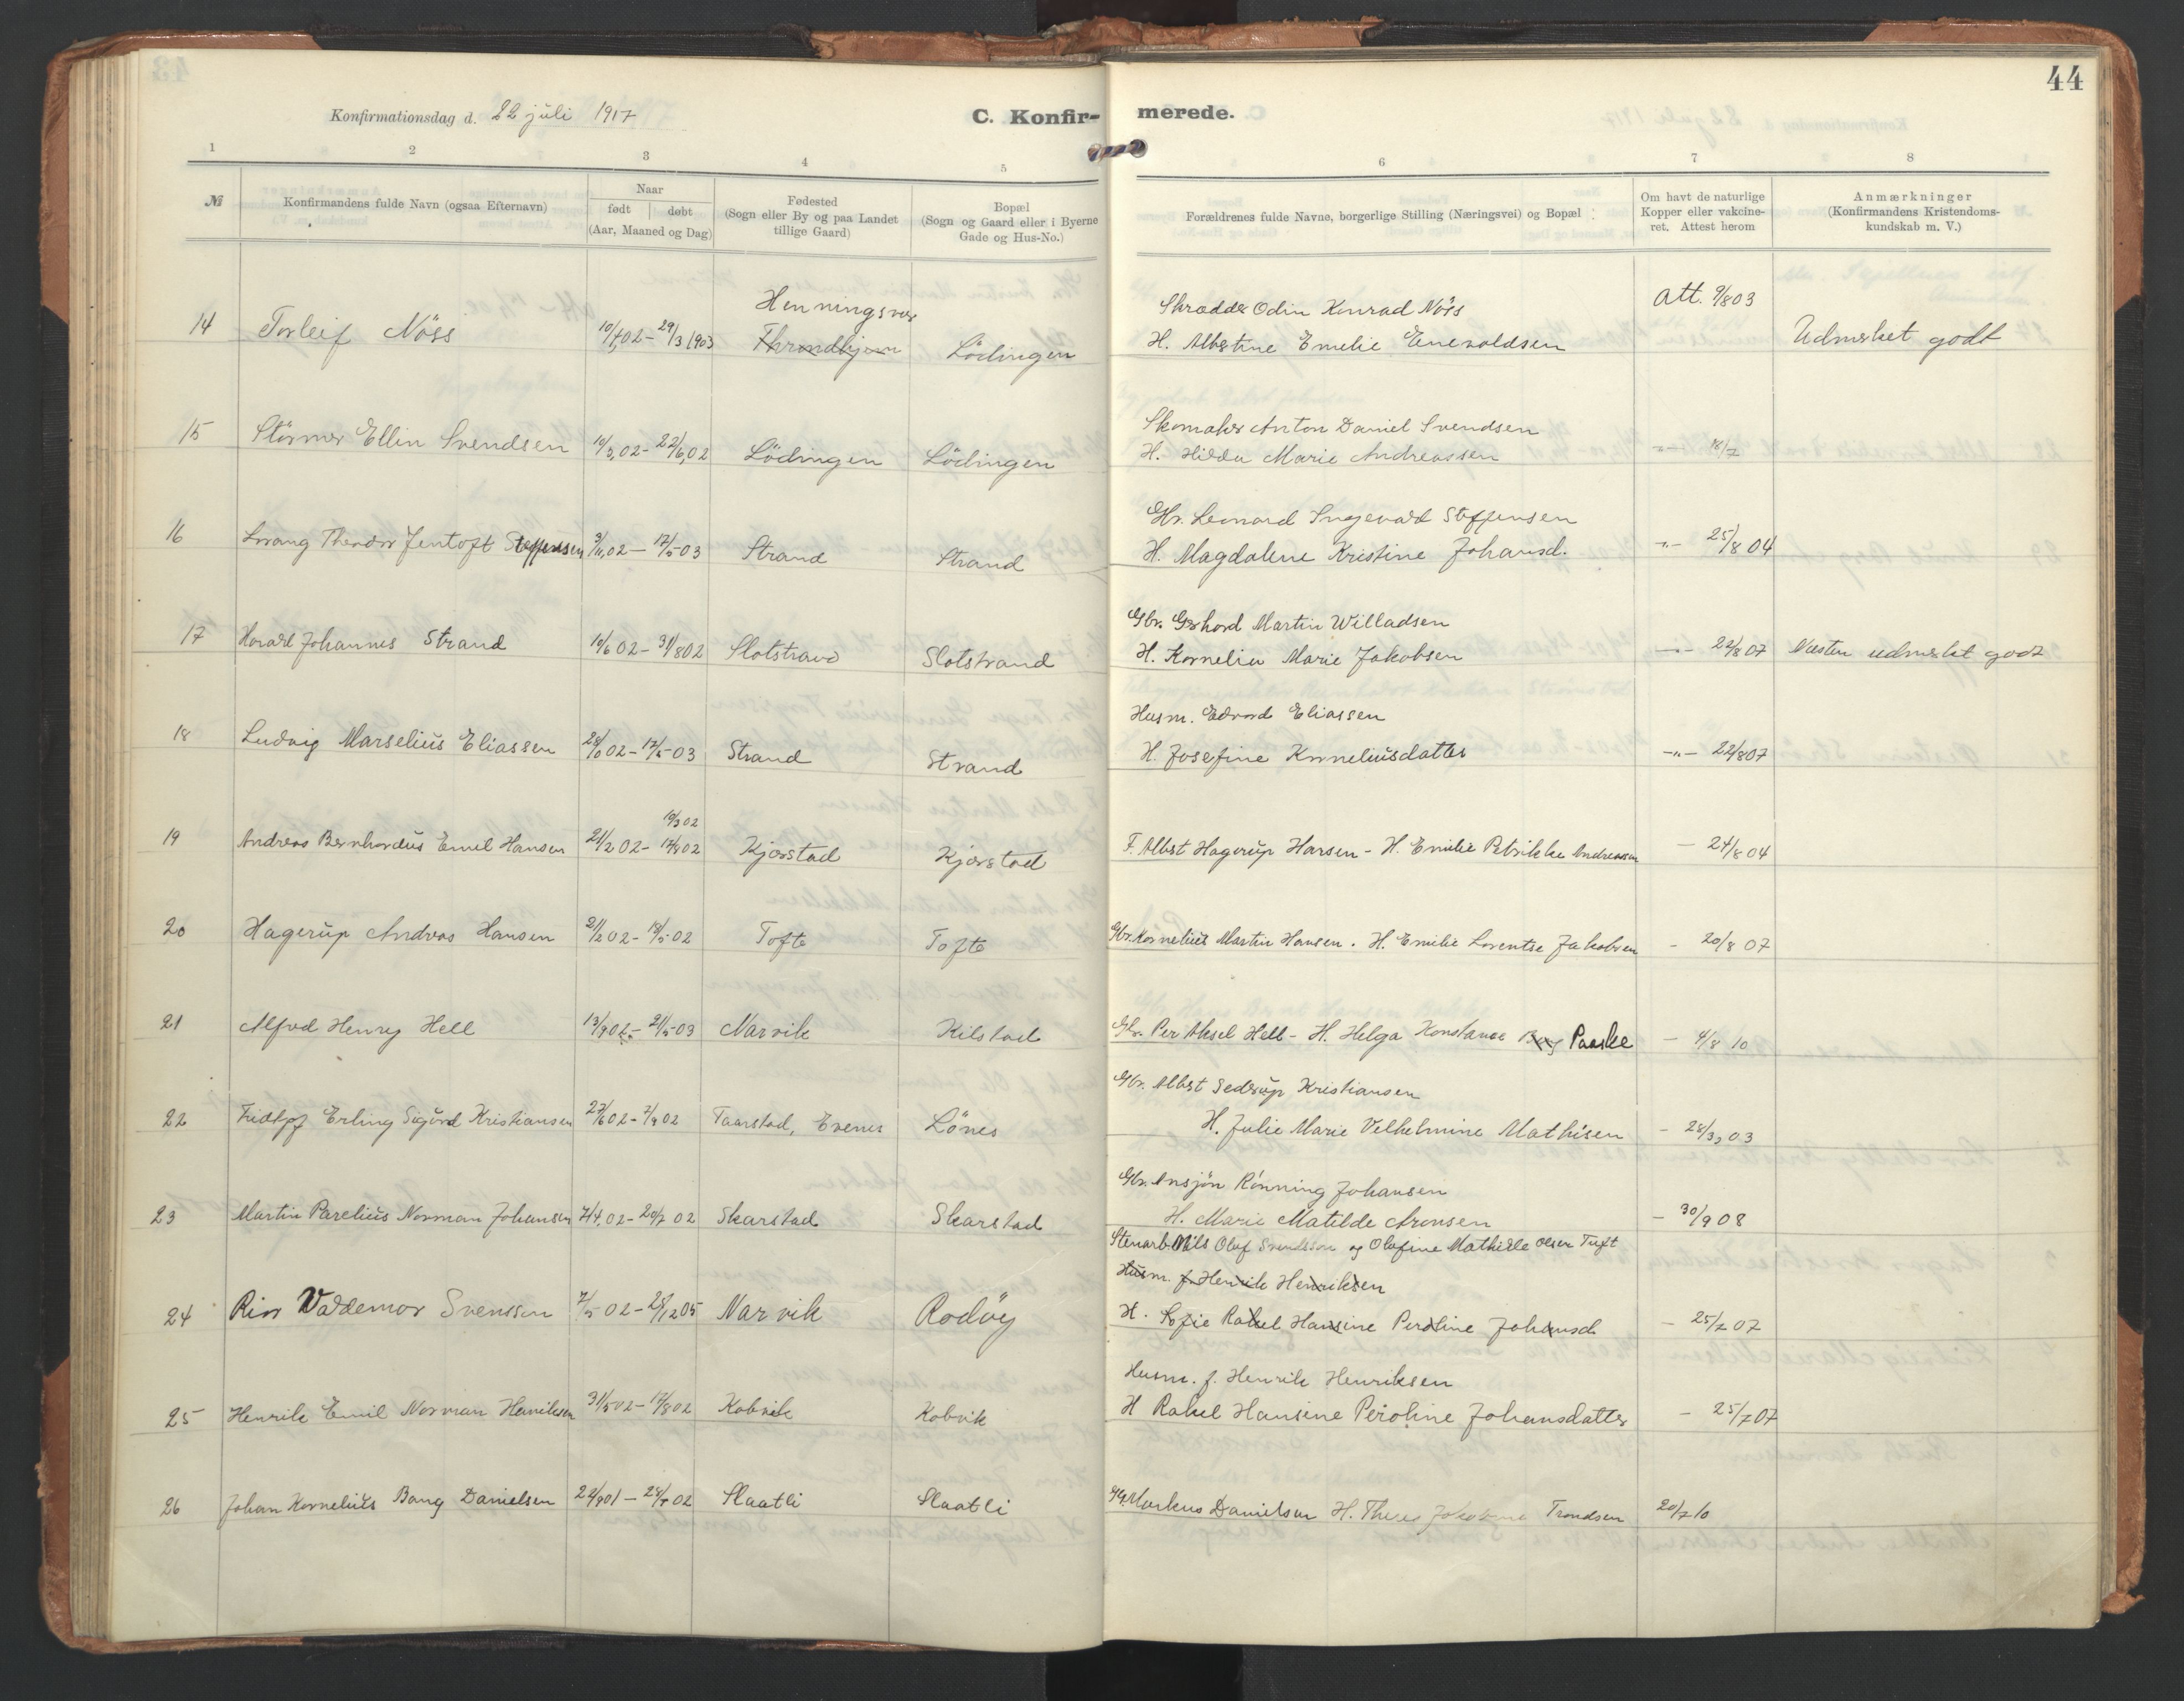 44
Konfirmationsdag d. 22 juli 1917
C. Konfir- merede.
1 2 3 4 5 6 7 8
№
Konfirmandens fulde Navn (ogsaa Efternavn)
Naar
født | døbt
(Aar, Maaned og Dag)
Fødested
(Sogn eller By og paa Landet
tillige Gaard)
Bopæl
(Sogn og Gaard eller i Byerne
Gade og Hus-No.)
Forældrenes fulde Navne, borgerlige Stilling (Næringsvei) og Bopæl
Om havt de naturlige
Kopper eller vakcine-
ret. Attest herom
Anmærkninger
(Konfirmandens Kristendoms-
kundskab m. V.)
Henningsvær
Skrædder Odin Konrad Nöss
Att. 9/8 03
14 Torleif Nöss 29/3 1903 Throndhjem Lödingen
H. Albertine Emelie Enevoldsen
Udmerket godt
Skomaker Anton Daniel Svendsen
15 Störmer Ellin Svendsen 19/3,02 - 22/6,02 Lödingen Lödingen
H. Hilda Marie Andreassen
Gbr. Leonard Ingevald Steffensen
16 Lorang Theodor Jentoft Steffensen 3/11,02 - 17/5 03 Strand Strand
H. Magdalene Kristine Johansd. -"- 25/8 04
Gbr. Gerhard Martin Willadsen
17 Harald Johannes Strand 19/6 02 - 31/8 02 Slotstrand Slotstrand
H. Kornelia Marie Jakobsen -"- 22/8 07 Næsten udmerket godt
Husm. Edvard Eliassen
18 Ludvig Marselius Eliassen 02 - 17/5 03 Strand Strand
H. Josefine Korneliusdatter -"- 22/8 07
19/3 02
19 Andreas Bernhardus Emil Hansen 21/2 02 - Kjærstad Kjærstad
F. Albert Hagerup Hansen - H. Emilie Petrikke Andreassen - 24/8 04
20 Hagerup Andreas Hansen 21/2 02 - 18/5 02 Tofte Tofte
Gbr. Kornelius Martin Hansen. H. Emilie Lorentse Jakobsen - 20/8 07
21 Alfred Henry Hell 13/9 02 - 21/5 03 Narvik Kilstad
Gbr. Per Aksel Hell - H. Helga Konstanse Berg Paaske - 4/8 10
Gbr. Albert Sederup Kristiansen
22 Fridtjof Erling Sigurd Kristiansen 27/6 02 - 7/9 02 Taarstad, Evenes Lönes
H. Julie Marie Velhelmine Mathisen - 28/3, 03
Gbr. Ansjön Rönning Johansen
23 Martin Parelius Norman Johansen 7/4,02 - 20/7 02 Skarstad Skarstad
H. Marie Matilde Aronsen - 30/9 08
Stenarb. Nils Olaf Svendsson og Olafine Mathilde Olsen Tuft
Husm. f. Henrik Henriksen
24 Rior Valdemar Svenssen 7/5 02 - 28/12 05 Narvik Rodöy
H. Sofie Rakel Hansine Peroline Johansd - 25/7 07
Husm. f. Henrik Henriksen
25 Henrik Emil Norman Henriksen 31/5 02 - 17/8 02 Kobvik Kobvik
H Rakel Hansine Peroline Johansdatter - 25/7 07
26 Johan Kornelius Bang Danielsen 22/9 01 - Slaatli Slaatli
Markus Danielsen H. Jakobine Trondsen 20/7 10